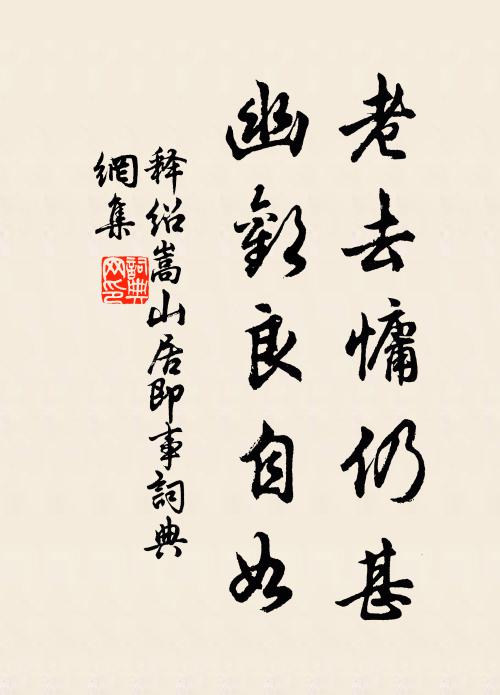 老去慵仍甚
幽歡良自如
释绍嵩山居即事詞典
網集
詞典
网印